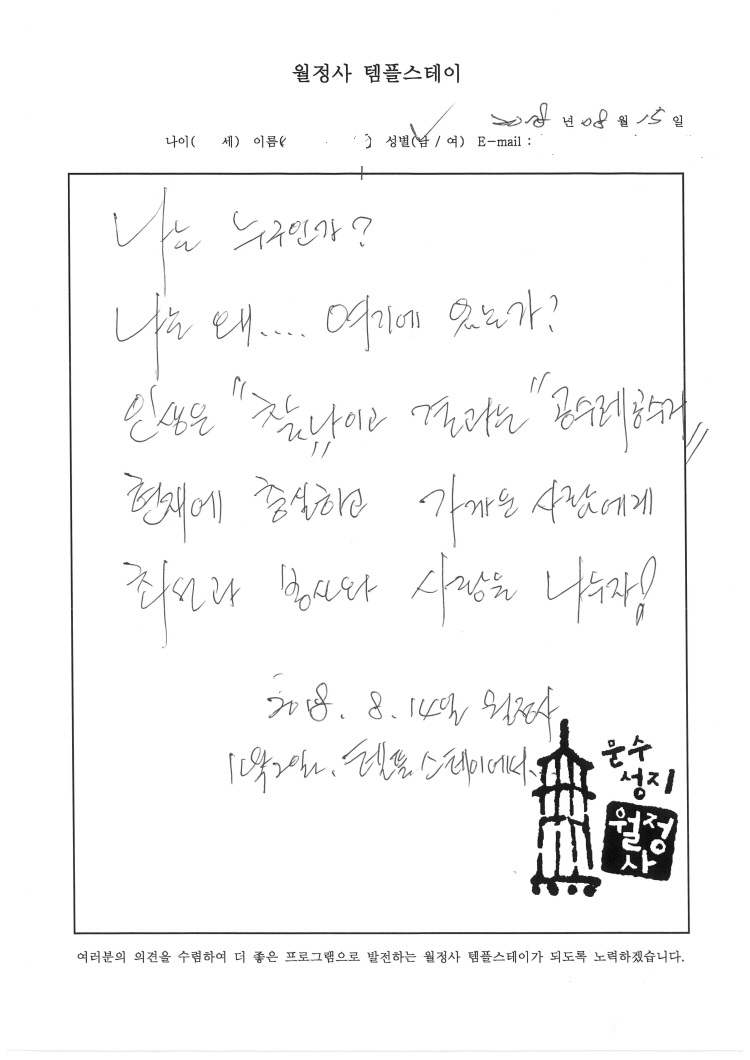 월정사 템플스테이
2018 년 08 월 15 일
나이( 세) 이름( ) 성별(남 / 여) E-mail :
나는 누구인가?
나는 왜.... 여기에 있는가?
인생은 "찰나"이고 결과는 "공수레공수거"
현재에 충실하고 가까운 사람에게
최선과 봉사와 사랑을 나누자!
2018. 8. 14일 월정사
1박2일. 템플스테이에서.
문수
성지
월정
사
여러분의 의견을 수렴하여 더 좋은 프로그램으로 발전하는 월정사 템플스테이가 되도록 노력하겠습니다.